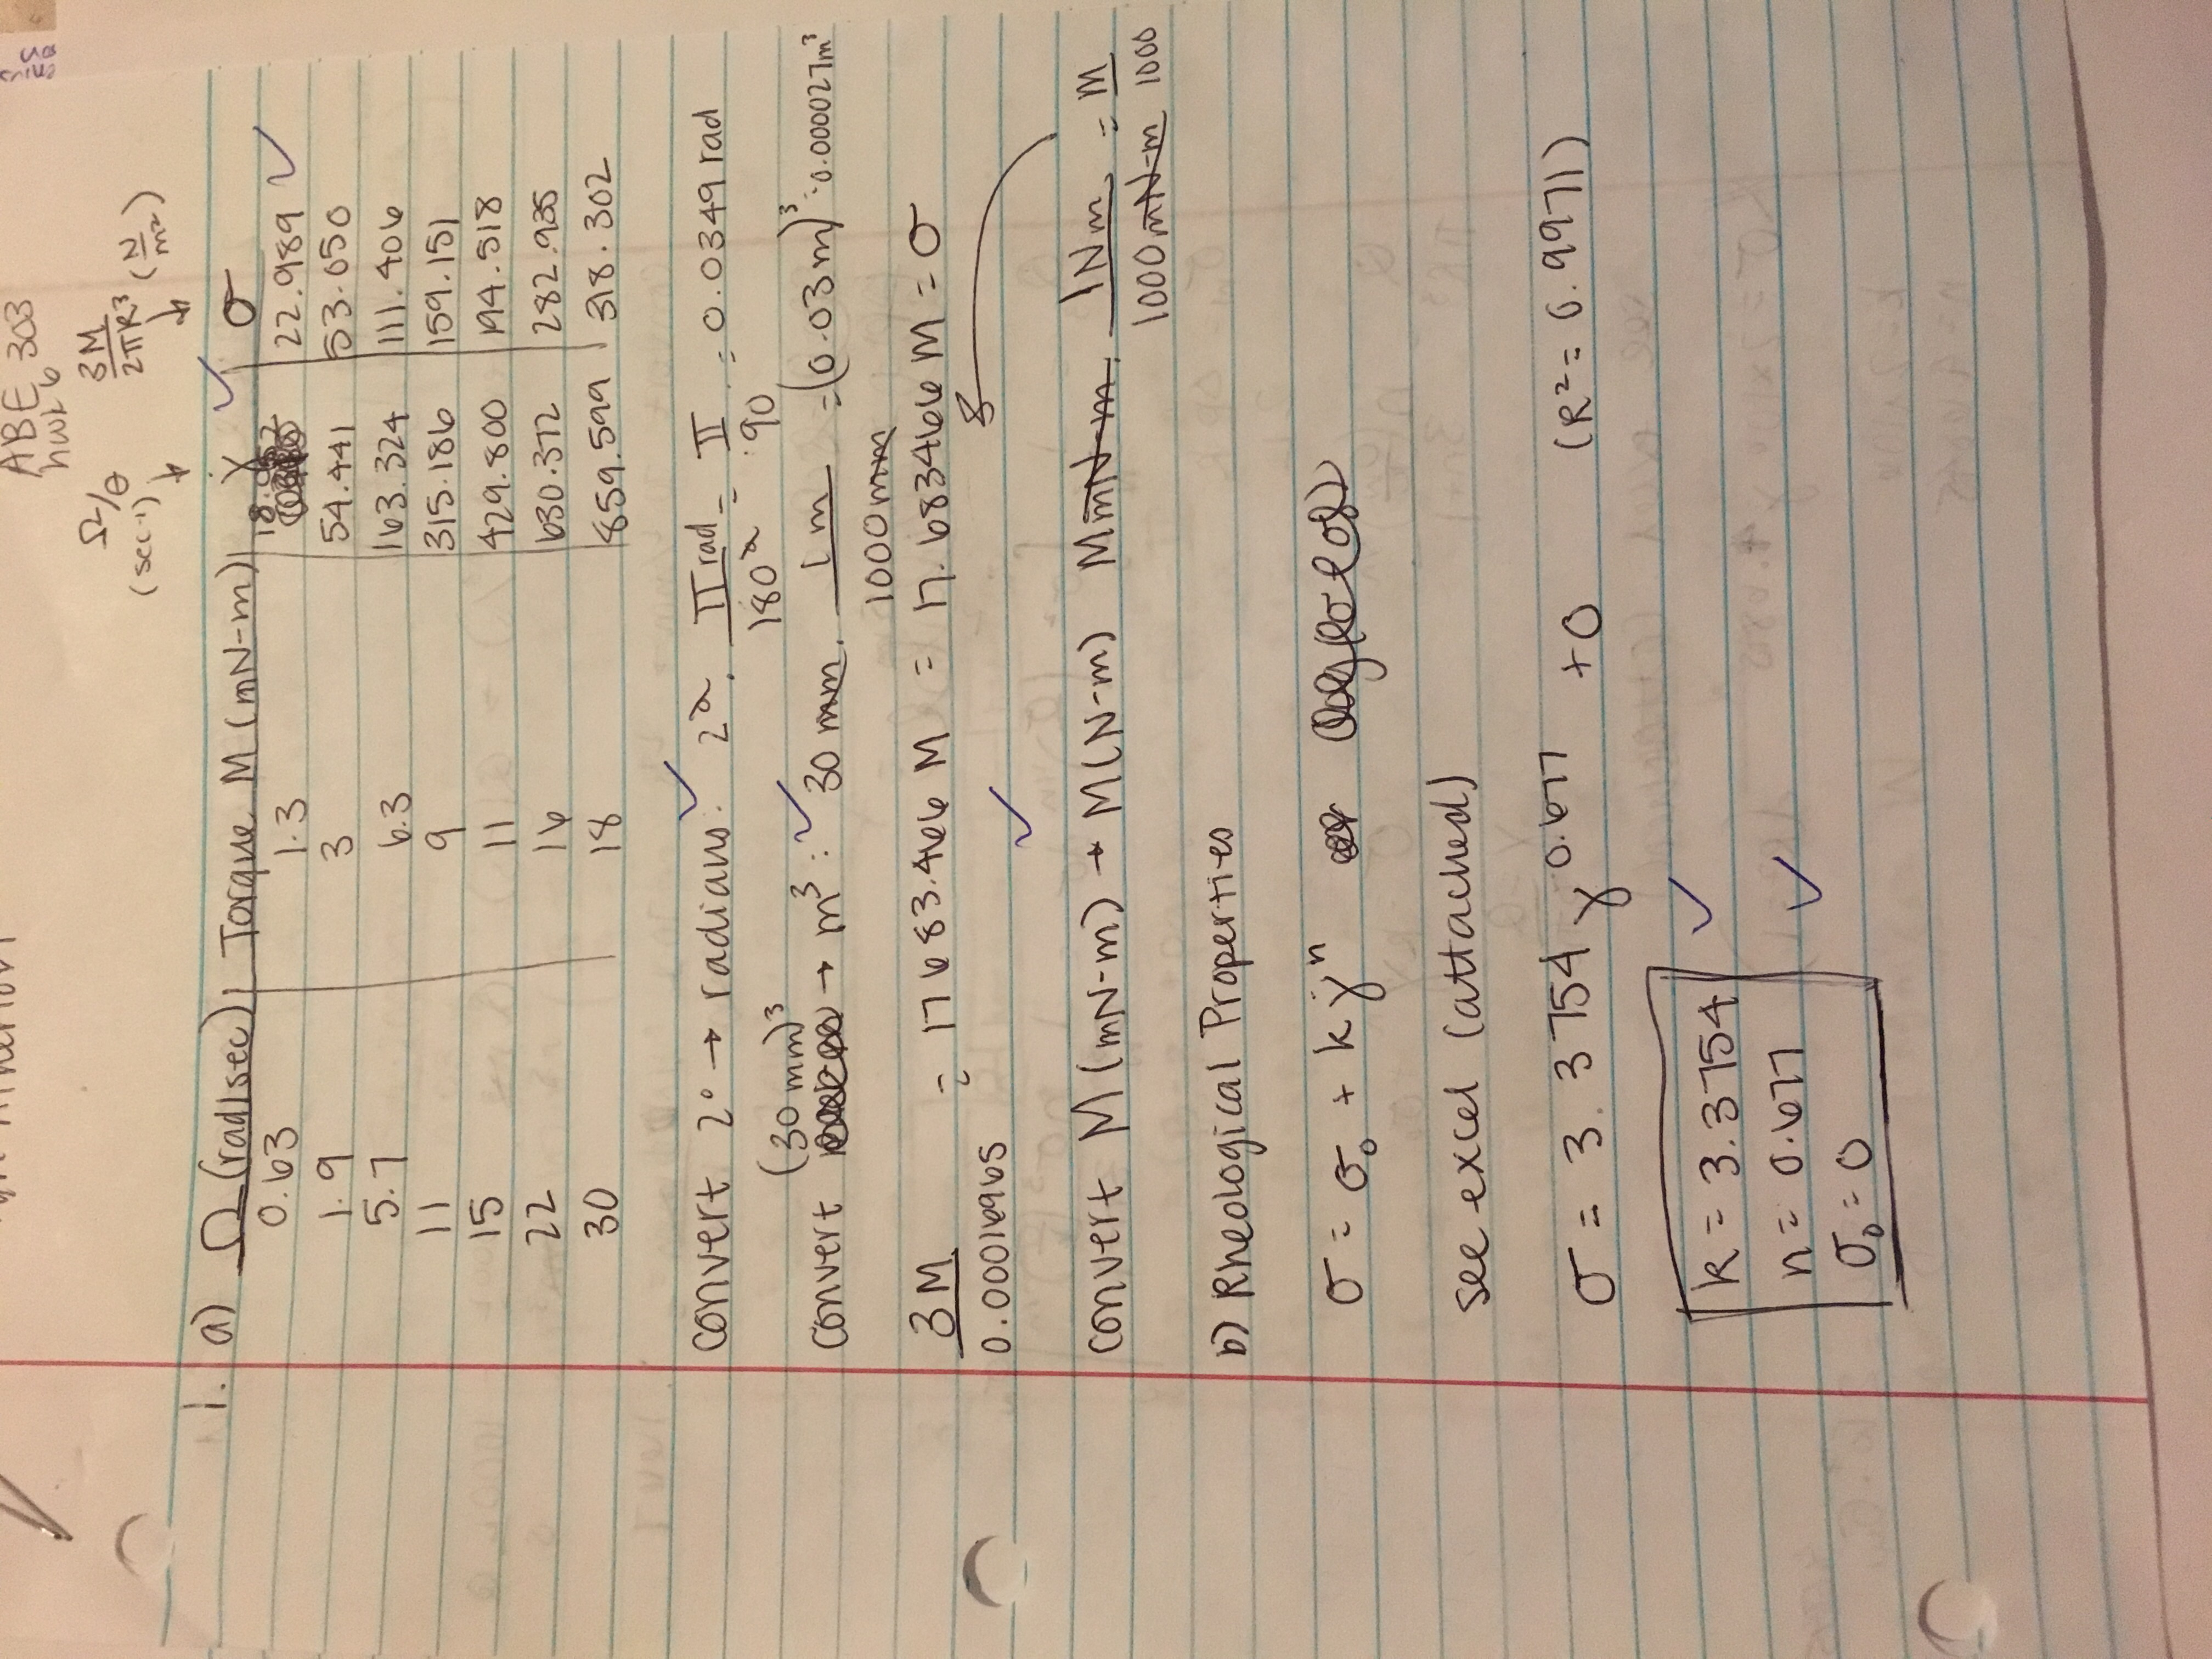 ABE 303
hwk 6
Ω/θ
(sec-1)
3M/2πR³ (N/m²)
1. a) Ω (rad/sec) | Torque M (mN-m) | γ̇ | σ
0.63 | 1.3 | 18.052 | 22.989
1.9 | 3 | 54.441 | 53.050
5.7 | 6.3 | 163.324 | 111.406
11 | 9 | 315.186 | 159.151
15 | 11 | 429.800 | 194.518
22 | 16 | 630.372 | 282.935
30 | 18 | 859.599 | 318.302
convert 2° → radians: 2° · π rad/180° = π/90 = 0.0349 rad
convert (30 mm)³ → m³: 30 mm · 1 m/1000 mm = (0.03 m)³ = 0.000027 m³
3M/0.00016965 = 17683.466 M = 17.683466 M = σ
convert M (mN-m) → M (N-m) M mN-m · 1 Nm/1000 mN-m = M/1000
b) Rheological Properties
σ = σ₀ + kγ̇ⁿ
see excel (attached)
σ = 3.3754 γ^0.677 + 0 (R² = 0.9971)
k = 3.3754
n = 0.677
σ₀ = 0